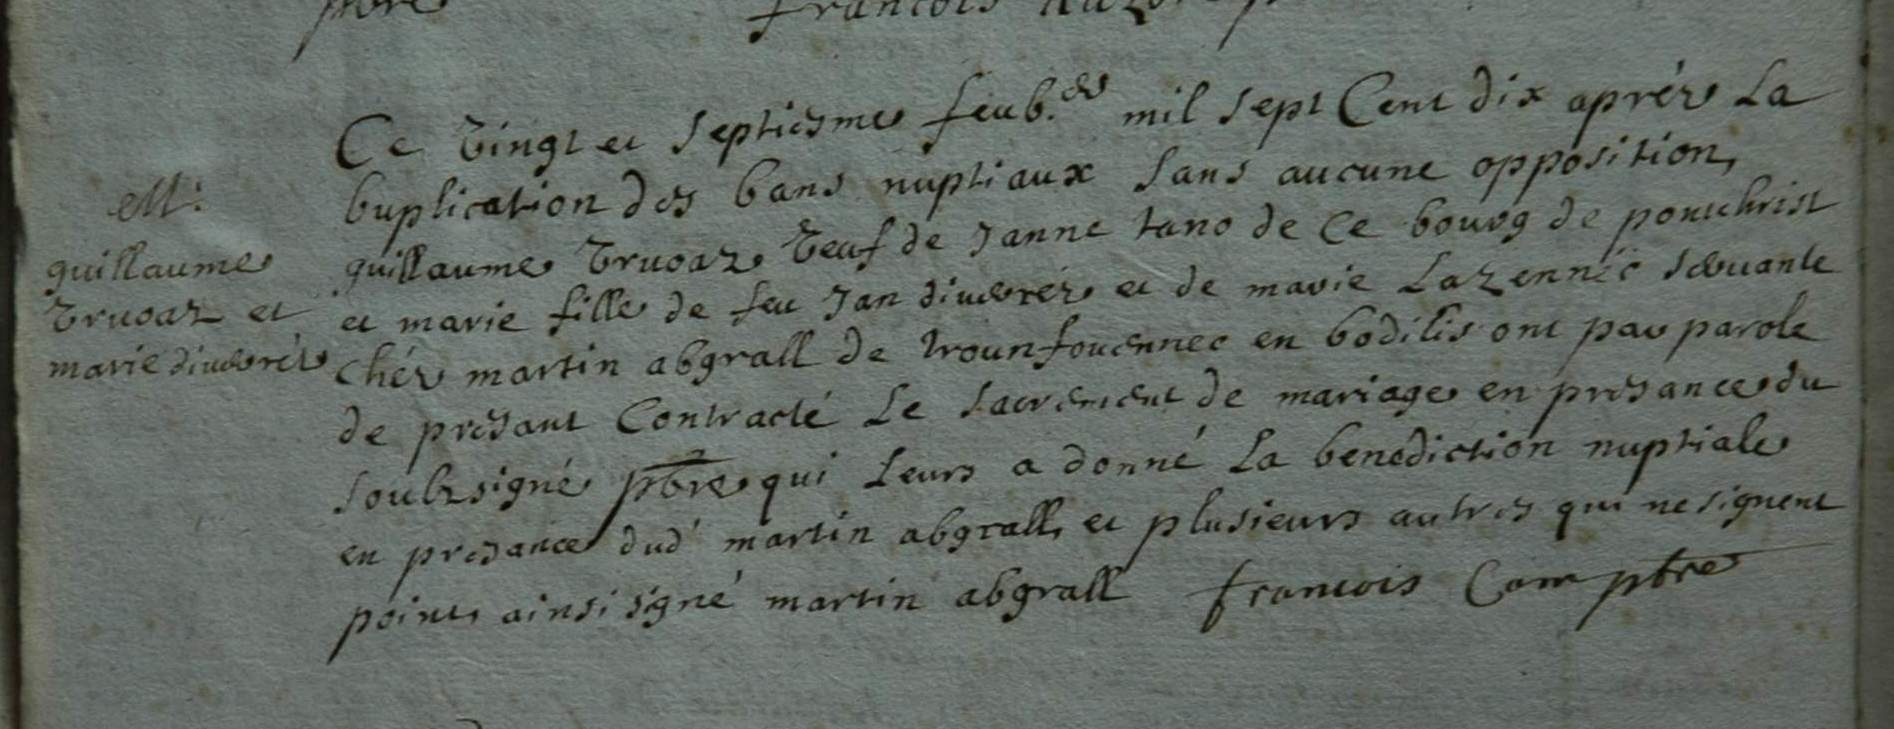 pbre
francois
Ce Vingt et septiesme feub.er mil sept Cent dix aprés La
buplication des bans nuptiaux sans aucune opposition,
guillaume Truoaz Veuf de Janne tano de ce bourg de pontchrist
et marie fille de feu Jan diuerrés et de marie Lazennéc seruante
chés martin abgrall de trounfouennec en bodilis ont par parole
de presant Contracté Le sacrement de mariage en presance du
soubzsigné pbre qui Leurs a donné La benediction nuptiale
en presance dud' martin abgrall, et plusieurs autres qui ne signent
point, ainsi signé martin abgrall francois Cam pbre
M:
guillaume
Truoaz et
marie diuerrés